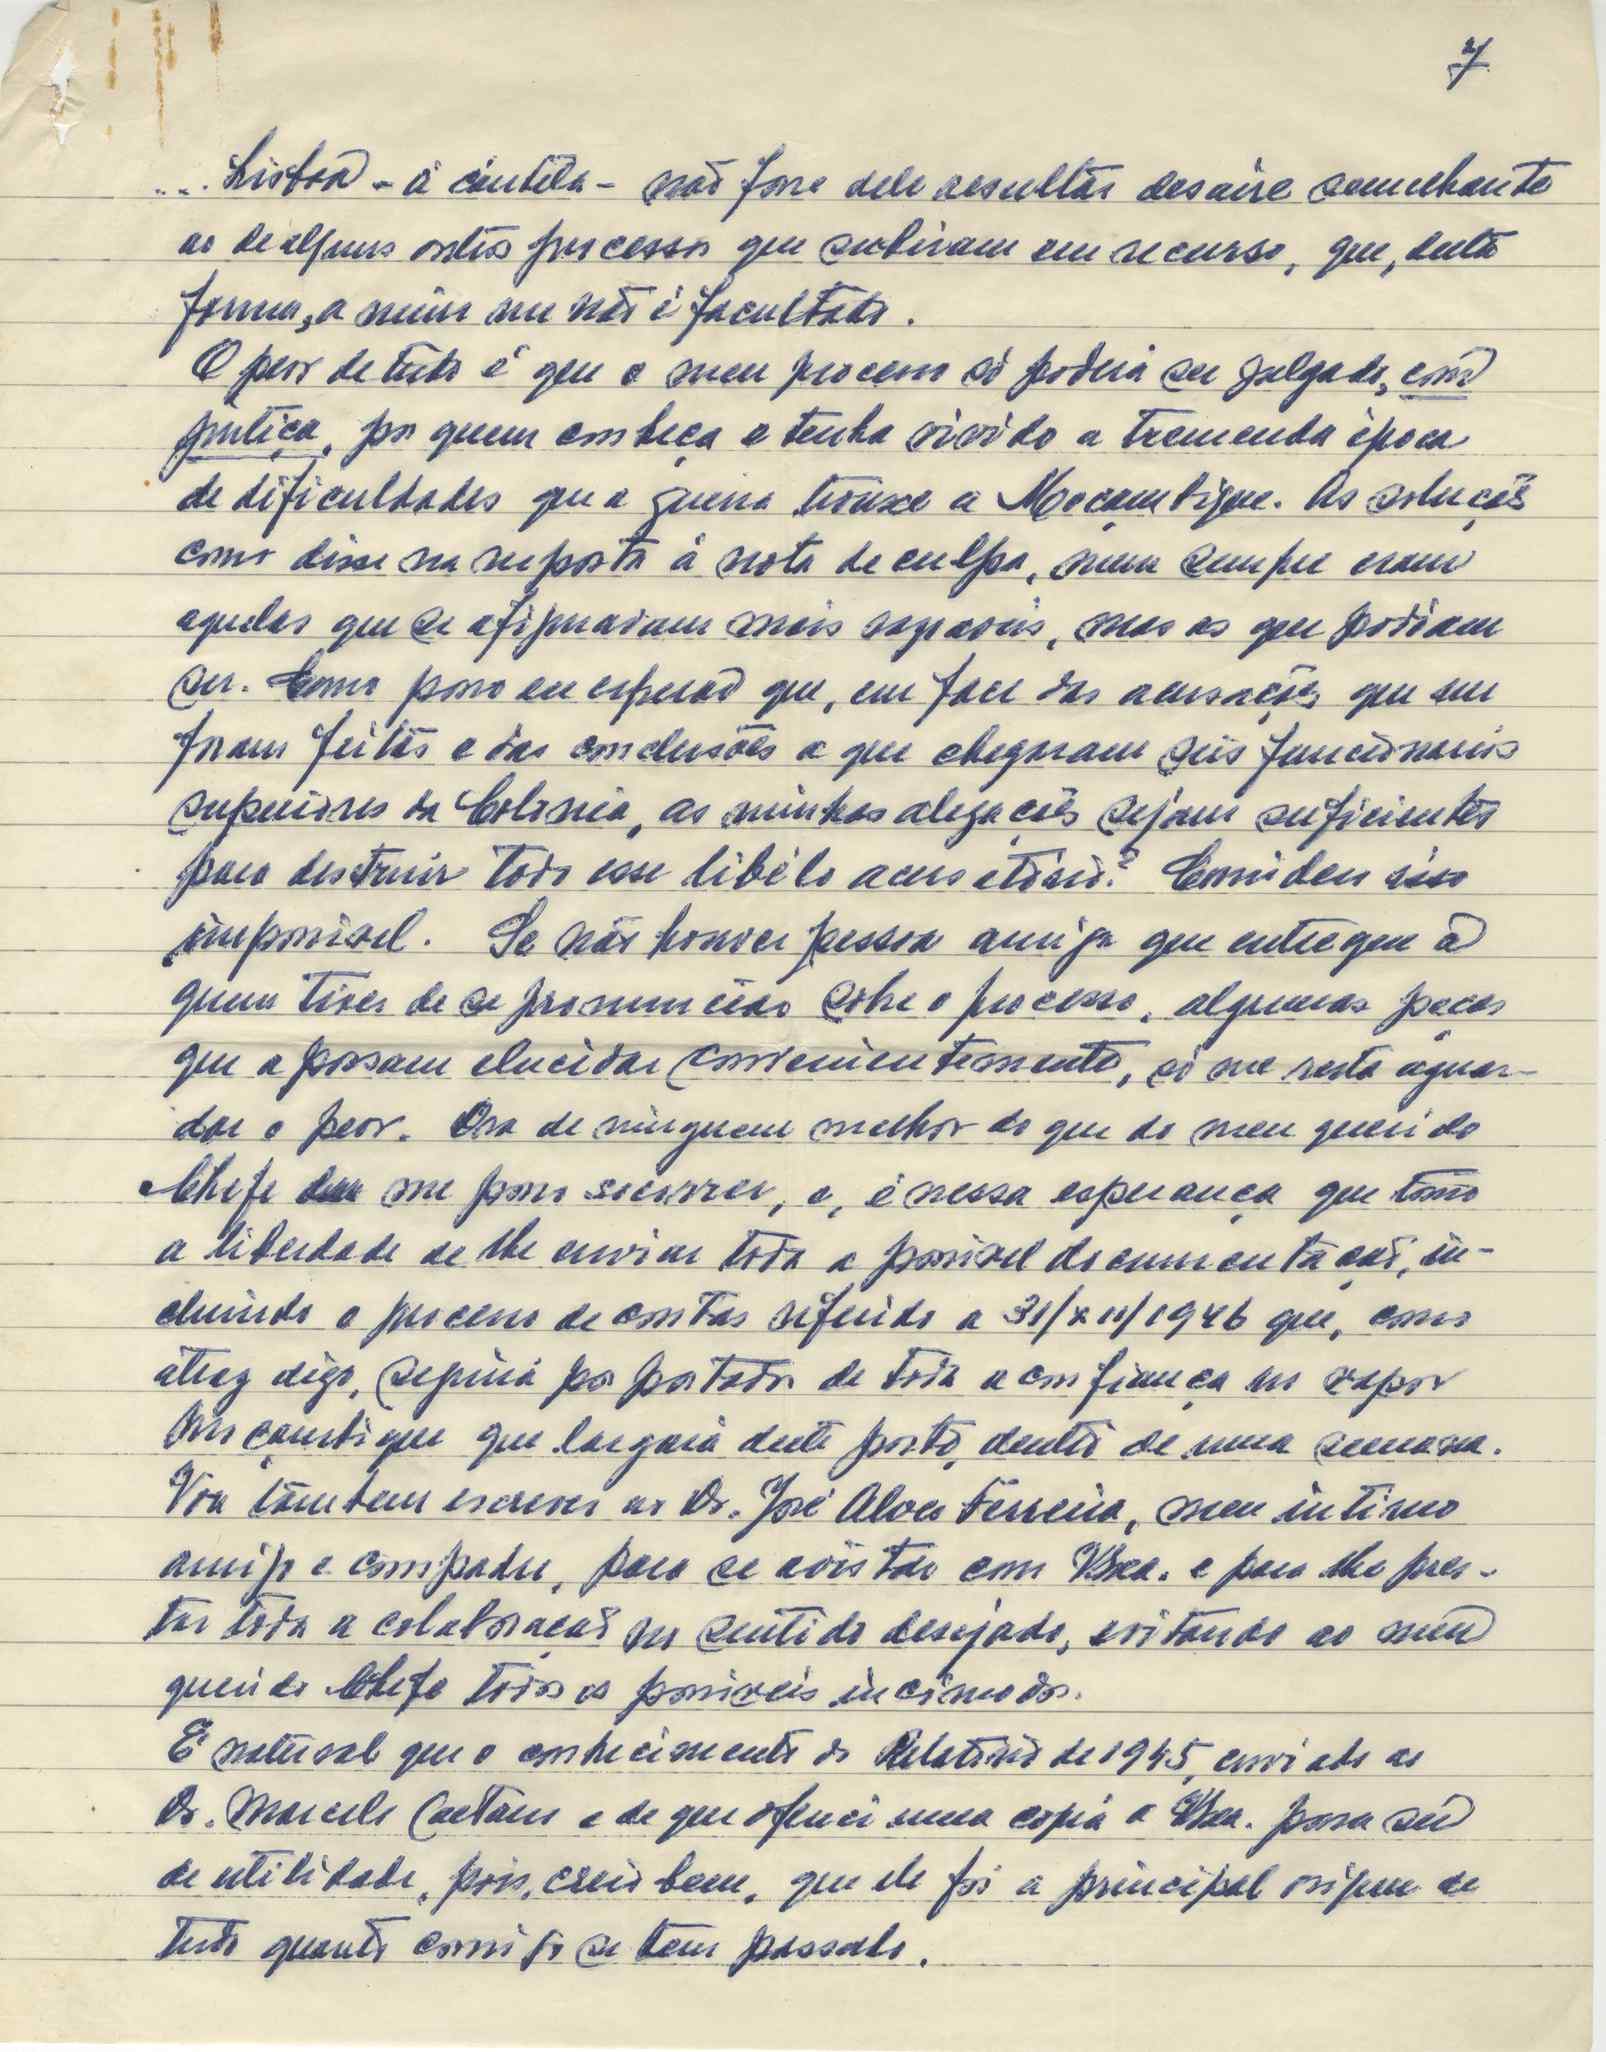 7
... Lisboa - á cautela - não fosse dele resultár desaire semelhante
ao de alguns outros processos que subiram em recurso, que, desta
forma, a mim me não é facultado.
O peor de tudo é que o meu processo só poderá ser julgado, com
justiça, por quem conheça e tenha vivido a tremenda época
de dificuldades que a guerra trouxe a Moçambique. As soluções
como disse na resposta á nota de culpa, nem sempre eram
aquelas que se afiguravam mais razoaveis, mas as que podiam
ser. Como posso eu esperar que, em face das acusações que me
foram feitas e das conclusões a que chegaram seis funcionarios
superiores da Colonia, as minhas alegações sejam suficientes
para destruir todo esse libélo acusatório? Considero isso
impossivel. Se não houver pessoa amiga que entregue á
quem tiver de se pronunciar sobre o processo, algumas peças
que a possam elucidar convenientemente, só me resta aguar-
dar o peor. Ora de ninguem melhor do que do meu querido
Chefe me posso socorrer, e, é nessa esperança que tomo
a liberdade de lhe enviar toda a possivel documentação, in-
cluindo o processo de contas referido a 31/XII/1946 que, como
atraz digo, seguirá por portador de toda a confiança no vapor
Moçambique que largará deste porto, dentro de uma semana.
Vou tambem escrever ao Dr. José Alves Ferreira, meu intimo
amigo e compadre, para se avistar com VExa. e para lhe pres-
tar toda a colaboração no sentido desejado, evitando ao meu
querido Chefe todos os possiveis incómodos.
É natural que o conhecimento do Relatório de 1945, enviado ao
Dr. Marcelo Caetano e de que ofereci uma copia a VExa. possa ser
de utilidade, pois, creio bem, que ele foi a principal origem de
tudo quanto comigo se tem passado.